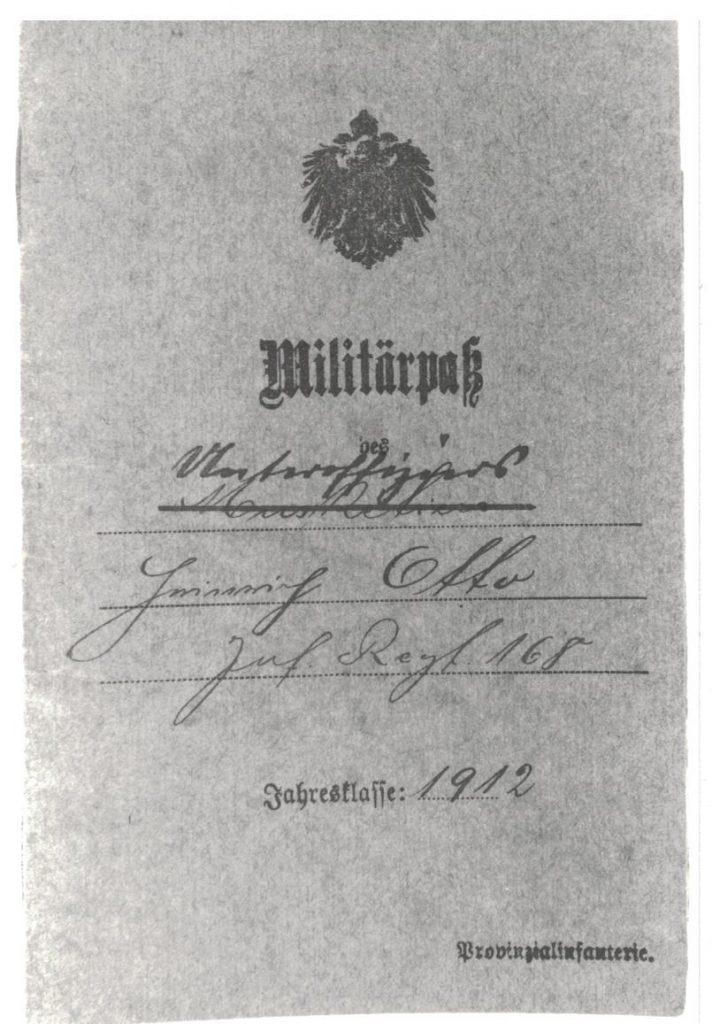 Militärpaß
des
Unteroffiziers
Musketiers
Heinrich Otto
Inf. Regt. 168
Jahresklasse: 1912
Provinzialinfanterie.